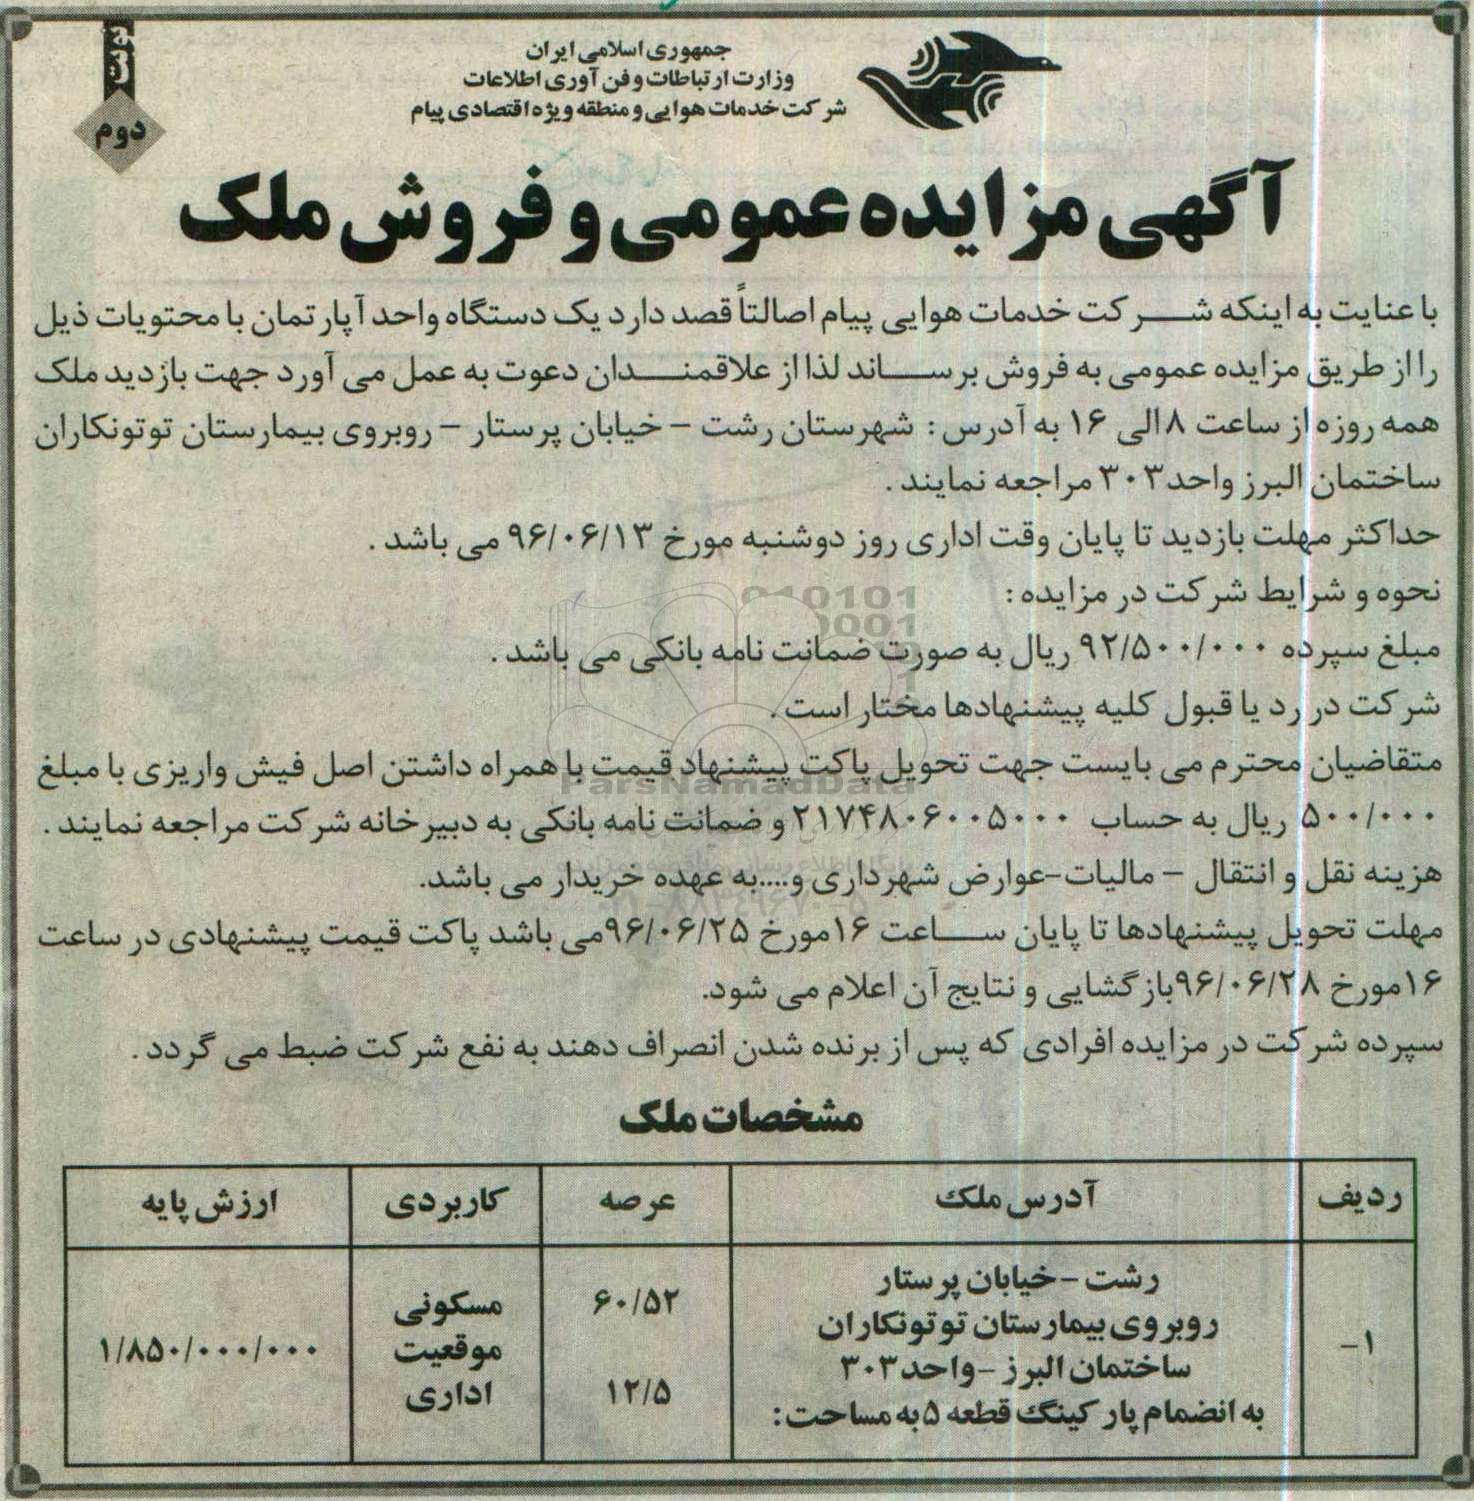 جمهوری اسلامی ایران
وزارت ارتباطات و فن آوری اطلاعات
شرکت خدمات هوایی و منطقه ویژه اقتصادی پیام
نوبت
دوم
آگهی مزایده عمومی و فروش ملک
با عنایت به اینکه شرکت خدمات هوایی پیام اصالتاً قصد دارد یک دستگاه واحد آپارتمان با محتویات ذیل
را از طریق مزایده عمومی به فروش برساند لذا از علاقمندان دعوت به عمل می آورد جهت بازدید ملک
همه روزه از ساعت ۸ الی ۱۶ به آدرس : شهرستان رشت – خیابان پرستار – روبروی بیمارستان توتونکاران
ساختمان البرز واحد ۳۰۳ مراجعه نمایند .
حداکثر مهلت بازدید تا پایان وقت اداری روز دوشنبه مورخ ۹۶/۰۶/۱۳ می باشد .
نحوه و شرایط شرکت در مزایده :
مبلغ سپرده ۹۲/۵۰۰/۰۰۰ ریال به صورت ضمانت نامه بانکی می باشد .
شرکت در رد یا قبول کلیه پیشنهادها مختار است .
متقاضیان محترم می بایست جهت تحویل پاکت پیشنهاد قیمت با همراه داشتن اصل فیش واریزی با مبلغ
۵۰۰/۰۰۰ ریال به حساب ۲۱۷۴۸۰۶۰۰۵۰۰۰ و ضمانت نامه بانکی به دبیرخانه شرکت مراجعه نمایند .
هزینه نقل و انتقال – مالیات-عوارض شهرداری و....به عهده خریدار می باشد.
مهلت تحویل پیشنهادها تا پایان ساعت ۱۶مورخ ۹۶/۰۶/۲۵می باشد پاکت قیمت پیشنهادی در ساعت
۱۶مورخ ۹۶/۰۶/۲۸بازگشایی و نتایج آن اعلام می شود.
سپرده شرکت در مزایده افرادی که پس از برنده شدن انصراف دهند به نفع شرکت ضبط می گردد .
ParsNamadData
مشخصات ملک
ردیف آدرس ملک عرصه کاربردی ارزش پایه
۱- رشت - خیابان پرستار
روبروی بیمارستان توتونکاران
ساختمان البرز - واحد ۳۰۳
به انضمام پارکینگ قطعه ۵ به مساحت:
۶۰/۵۲
۱۲/۵
مسکونی
موقعیت
اداری
۱/۸۵۰/۰۰۰/۰۰۰